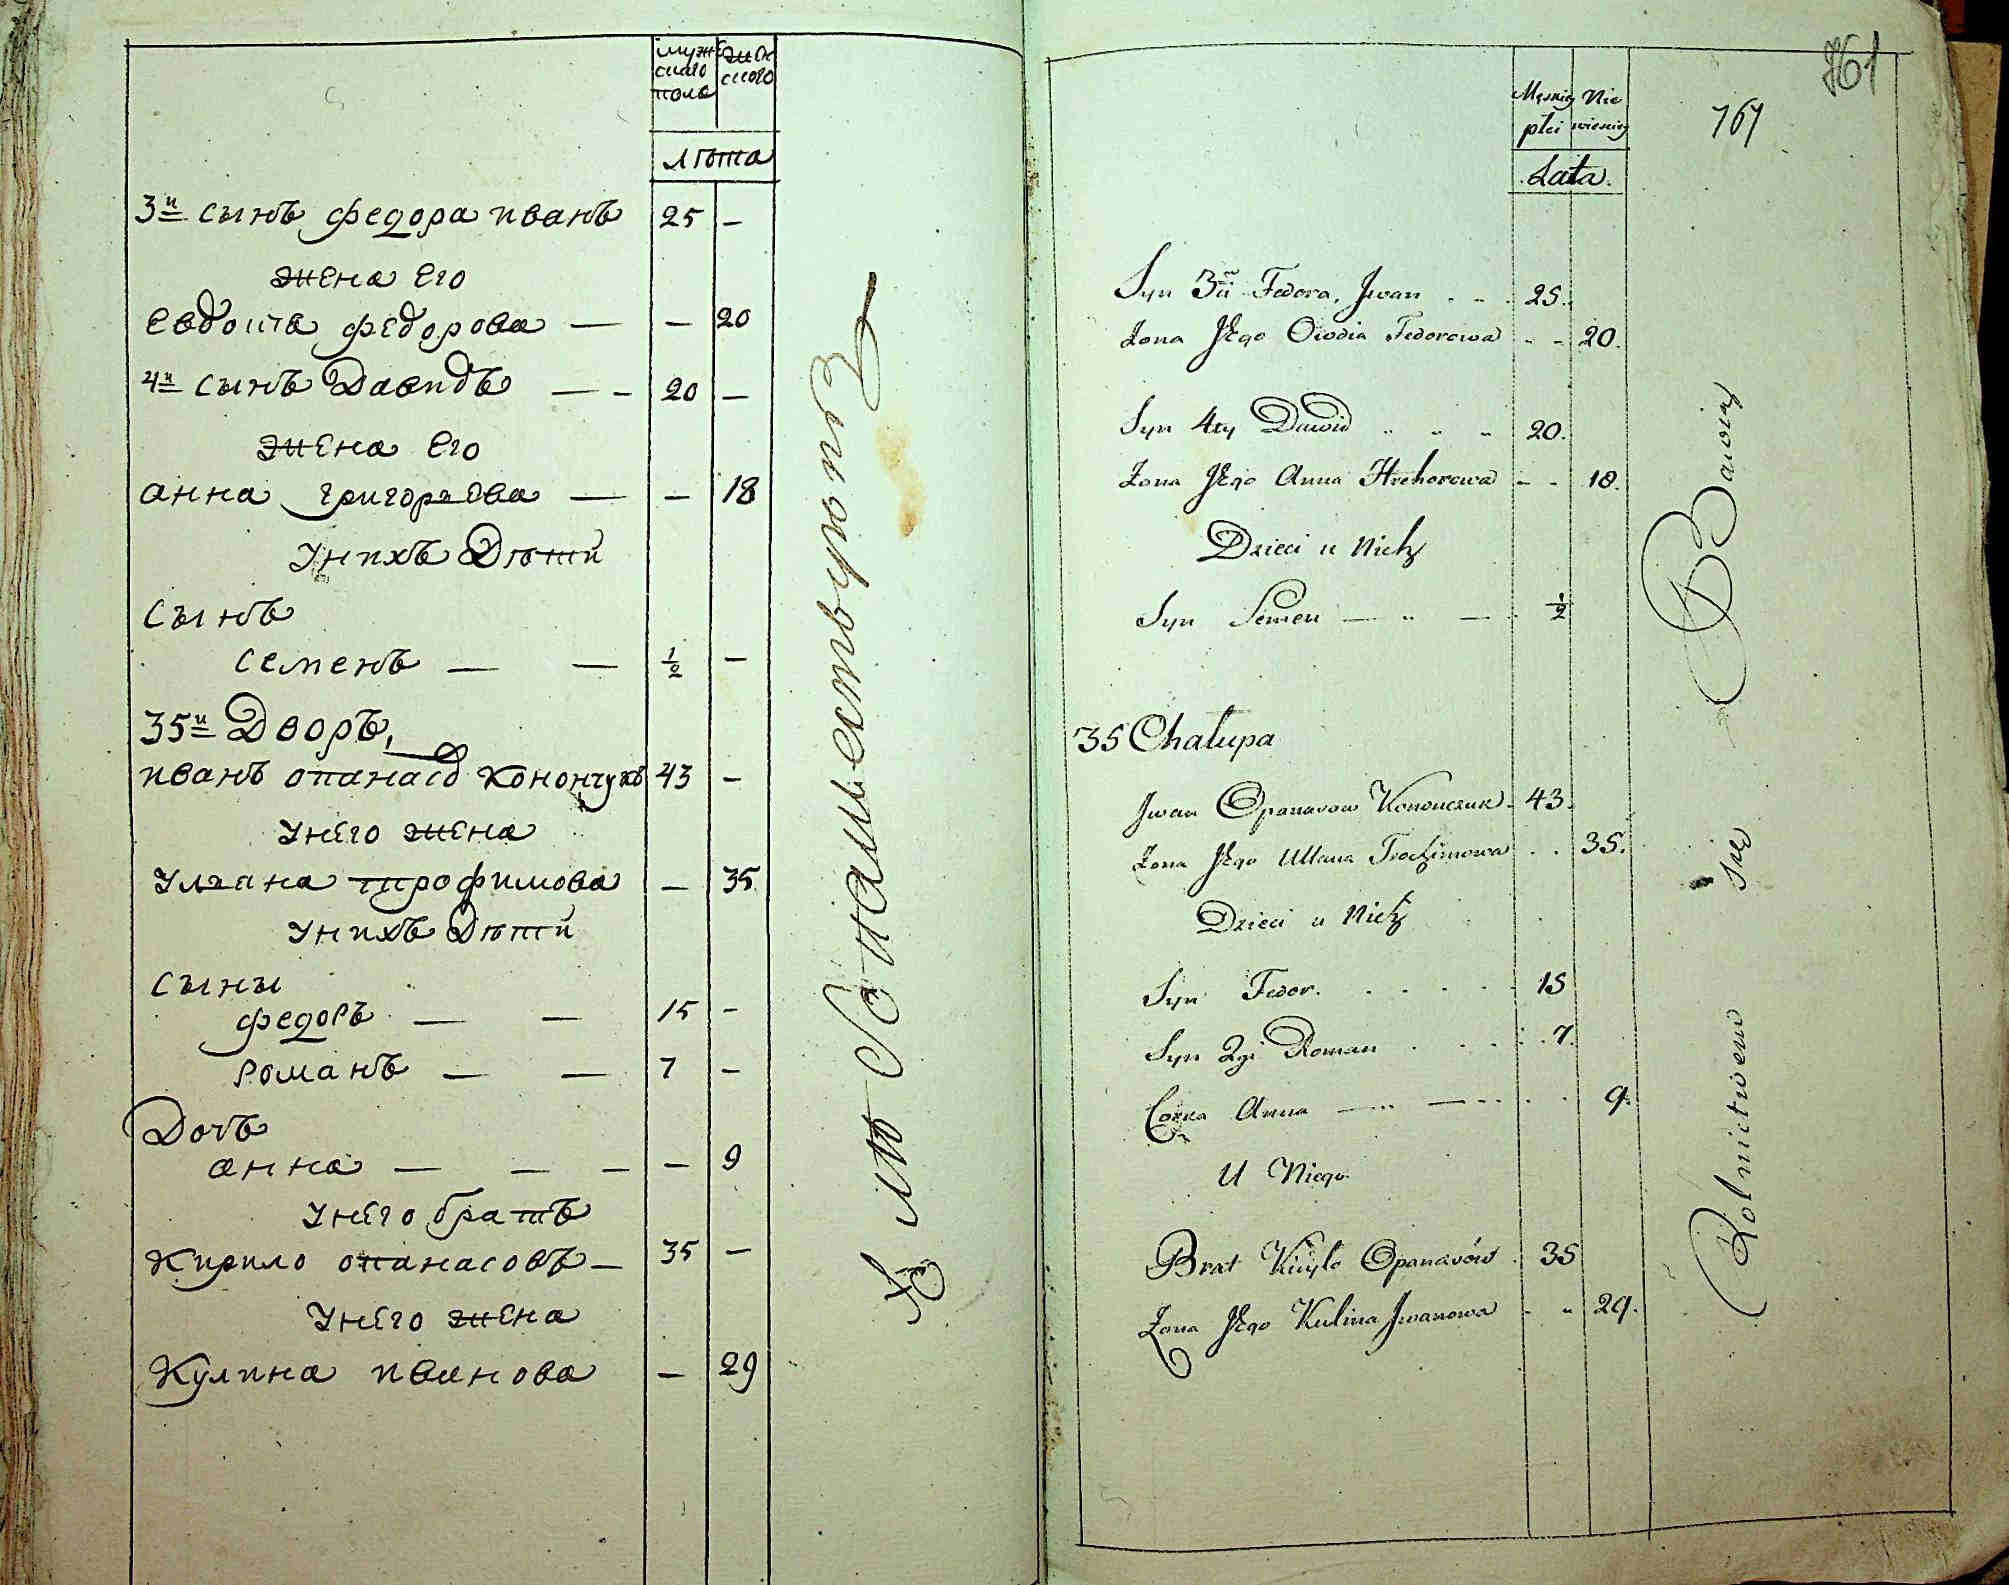 мужскаго пола
женскаго
лѣта
3й сынъ федора иванъ 25 —
жена его
евдоття федорова — — 20
4й сынъ Давидъ — - 20 —
жена его
анна григорьева — — 18
У нихъ Дѣтй
сынъ
семенъ — — 1/2 —
35й Дворъ,
иванъ опанасо конончукъ 43 —
У него жена
Ульана трофимова — 35
У нихъ Дѣти
сыны
федоръ — — 15 —
романъ — — 7 —
Дочъ
анна — — — — 9
У него братъ
Кирило опанасовъ — 35 —
У него жена
Кулина иванова — 29
Хлѣбопашествуютъ
761
Męskiej płci
Niewiesciej
767
Lata.
Syn 3ci Fedora, Jwan . . . 25.
Zona Jego Owdia Fedorowa - - 20.
Syn 4ty Dawid " " " 20.
Zona Jego Anna Hrehorowa - - 18.
Dzieci u Nich
Syn Semen — " — 1/2
35 Chalupa
Jwan Opanasow Kononczuk 43.
Zona Jego Ullana Trochimowa . . 35.
Dzieci u Nich
Syn Fedor. . . . . 15
Syn 2gi Roman . . . . 7.
Corka Anna — .. — . . . 9.
U Niego
Brat Kiryło Opanasów . 35
Zona Jego Kulina Jwanowa - " 29.
Rolnictwem się Bawią